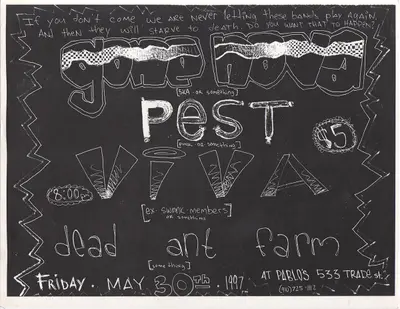 If you don't come we are never letting these bands play again
AND then they will starve to death. Do you WANT THAT TO HAPPEN?
gone nova
[SKA·OR something]
PEST
[punk·OR something]
$5
VIVA
8:00pm
[ex·swank·members]
OR something
dead ant farm
[something]
FRIDAY · MAY 30TH · 1997
AT PABLO'S 533 TRADE St.